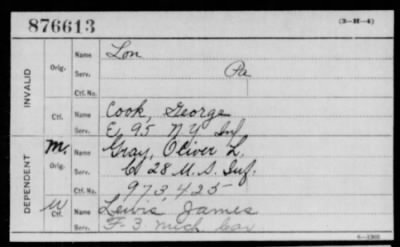 876613
(3-H-4)
INVALID
Orig.
Name Lon
Serv. Pa
Ctf. No.
Ctf.
Name Cook, George
Serv. E. 95 N Y Inf
DEPENDENT
M.
Orig.
Name Gray, Oliver L.
Serv. 28 U.S. Inf.
Ctf. No. 973,425
W
Ctf.
Name Lewis James
Serv. F-3 Mich Cav